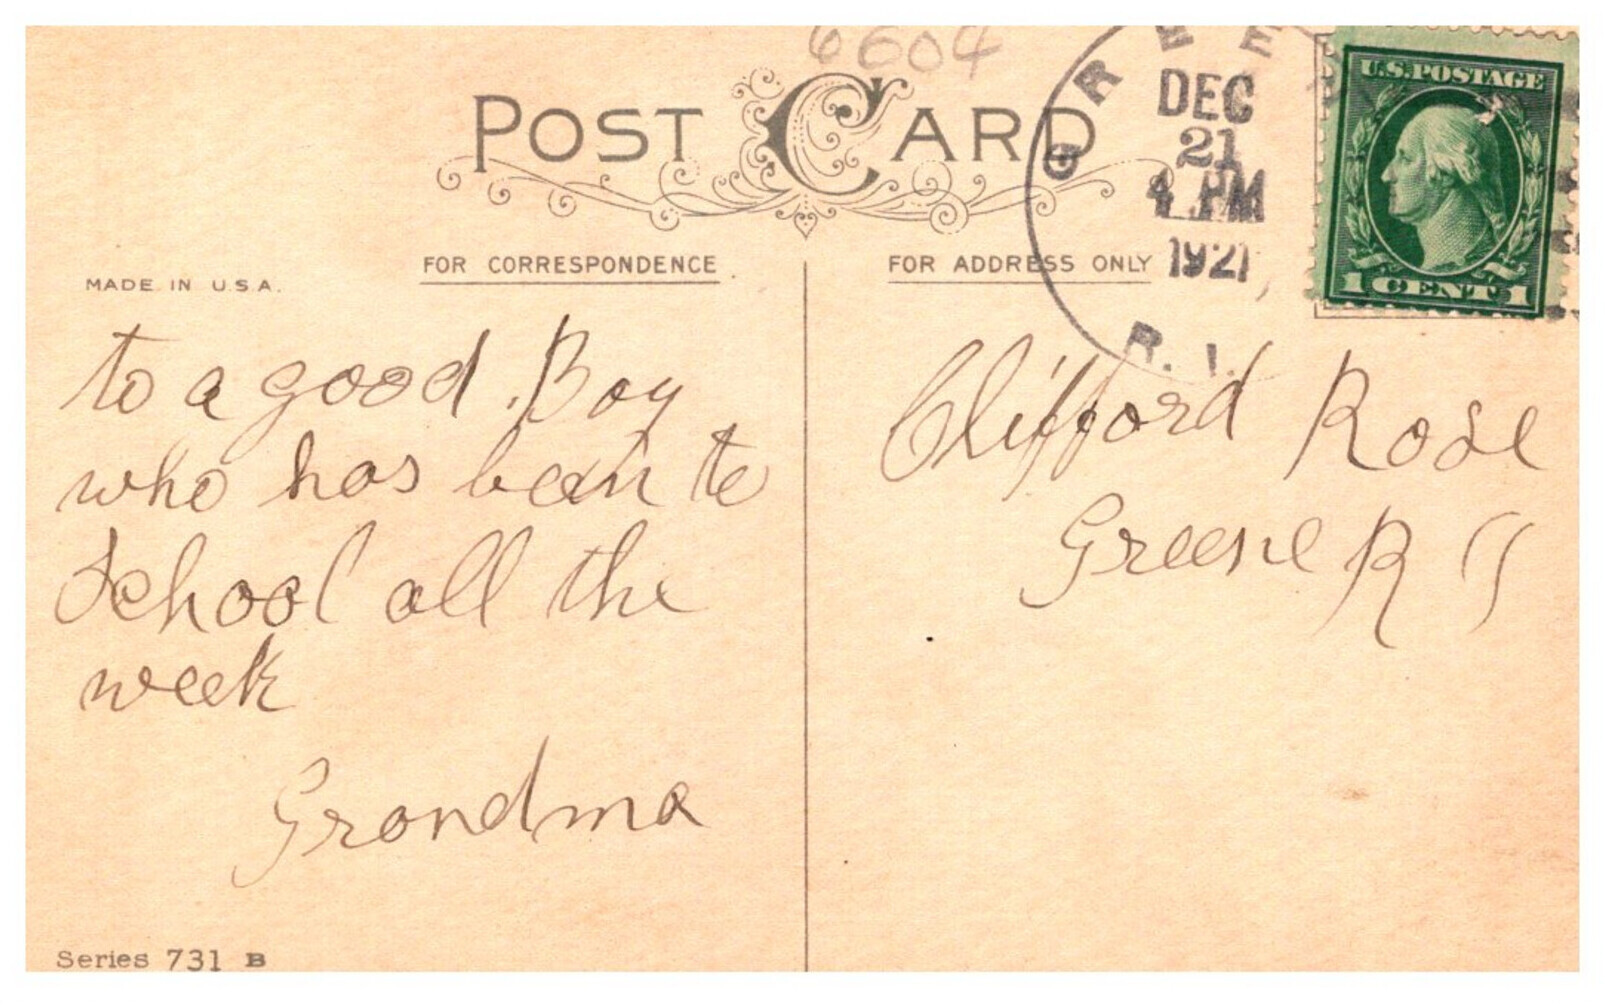 6604
POST CARD
GREENE
DEC
21
4 PM
1921
R. I.
U.S. POSTAGE
1 CENT 1
MADE IN U.S.A.
FOR CORRESPONDENCE
FOR ADDRESS ONLY
to a good Boy
who has been to
School all the
week
Grandma
Clifford Rose
Greene R I
Series 731 B